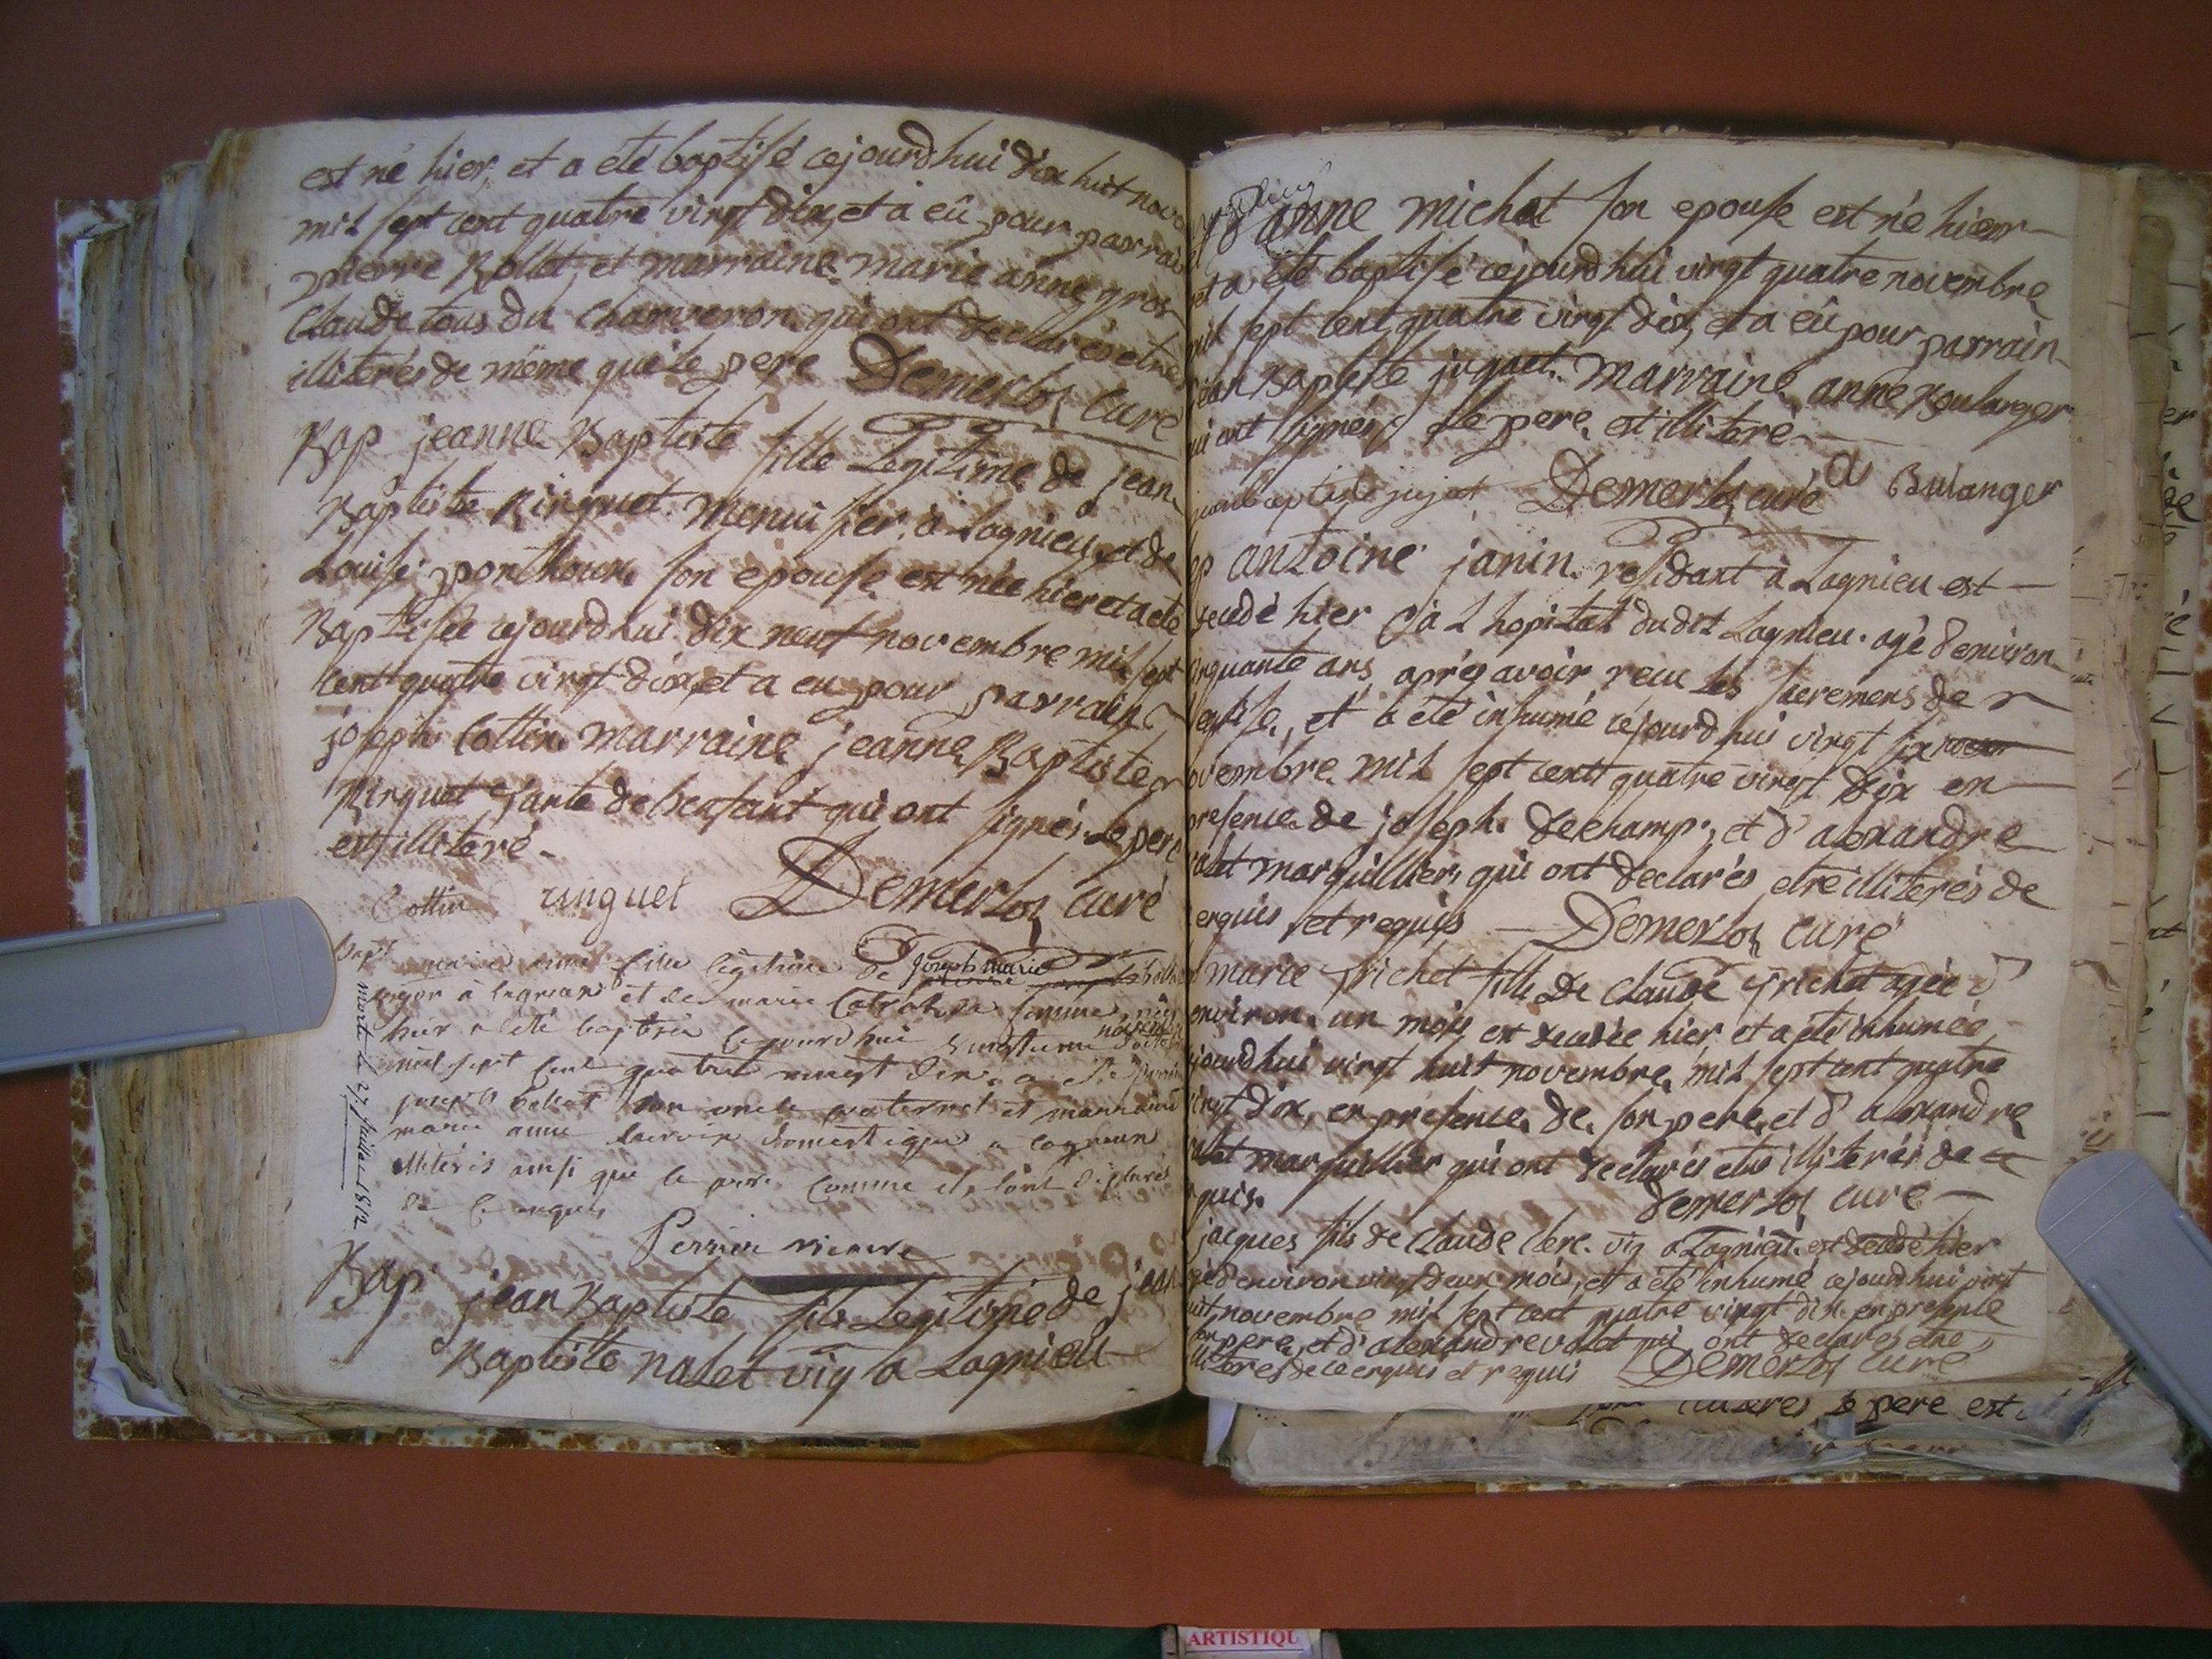 est né hier, et a été baptisé cejourdhui dix huit nov
mil sept cent quatre vingt dix, et a eû pour parrai
pierre Rollet, et marraine marie anne gros
Claude tous du Charveron qui ont declarés etre
illiterés de même que le pere Demerloz Curé
Bap jeanne Baptiste fille Legitime de jean
Baptiste Ringuet menuisier à Lagnieu, et de
Louise ponthoux son epouse est née hier et a été
Baptisée cejourdhui dix neuf novembre mil sept
cent quatre vingt dix, et a eu pour parrain
joseph Cottin marraine jeanne Baptiste
Ringuet tante de l'enfant qui ont signés. Le pere
est illiteré.
Cottin ringuet Demerloz Curé
Bapt marie anne fille legitime de joseph marie
à lagnieu et de marie sa femme née
hier a été baptisée cejourdhui novembre
mil sept cent quatre vingt dix. a
joseph son oncle paternel et marraine
marie anne lacroix domestique a lagnieu
illiterés ainsi que le pere comme ils l'ont declarés
de ce enquis
morte le 27 juillet 1812
Perrier vicaire
Bap jean Baptiste fils Legitime de jean
Baptiste nalet vig a Lagnieu
anne michat son epouse est né hier
et a été baptisé cejourdhui vingt quatre novembre
mil sept cent quatre vingt dix, et a eû pour parrain
jean Baptiste jujat. marraine anne Boulanger
qui ont signés: le pere est illiteré
jujat Demerloz curé a Bulanger
antoine janin residant à Lagnieu est
decedé hier à L hopital dudit Lagnieu. agé d'environ
cinquante ans, après avoir recu les sacremens de
l'eglise, et a été inhumé cejourdhui vingt six
novembre mil sept cent quatre vingt dix en
presence de joseph dechamp, et d'alexandre
valet marguillier, qui ont declarés etre illiterés de
enquis et requis Demerloz Curé
marie frichet fille de Claude frichet agée d'
environ un mois est decedée hier et a été inhumée
cejourdhui vingt huit novembre mil sept cent quatre
vingt dix, en presence de son pere, et d'alexandre
valet marguillier qui ont declarés etre illiterés de
quis. demerloz curé
jacques fils de Claude clerc vig a Lagnieu est decedé hier
agé d'environ vingt deux mois, et a été inhumé cejourdhui vint
huit novembre mil sept cent quatre vingt dix en presence
son pere, et d'alexandre valet qui ont declarés etre
illiteres de ce enquis et requis Demerloz Curé
le pere est
ARTISTIQU